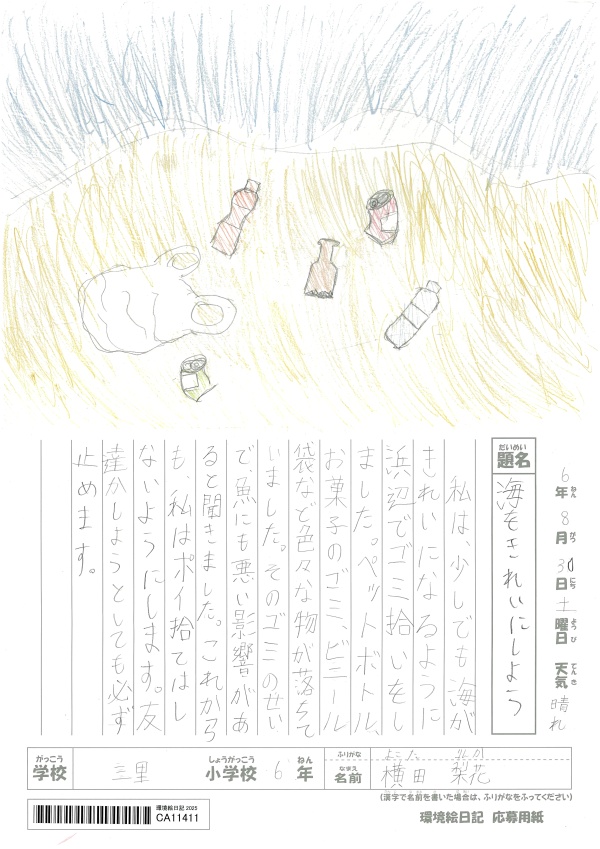 6年8月30日土曜日 天気 晴れ
ねん がつ にち ようび てんき
だいめい
題名 海をきれいにしよう
私は、少しでも海が
きれいになるように
浜辺でゴミ拾いをし
ました。ペットボトル、
お菓子のゴミ、ビニール
袋など色々な物が落ちて
いました。そのゴミのせい
で、魚にも悪い影響があ
ると聞きました。これから
も、私はポイ捨てはし
ないようにします。友
達がしようとしても必ず
止めます。
がっこう しょうがっこう ねん
学校 三里 小学校 6年
ふりがな よこた りんか
なまえ
名前 横田 梨花
(漢字で名前を書いた場合は、ふりがなをふってください)
環境絵日記 2025
CA11411
環境絵日記 応募用紙